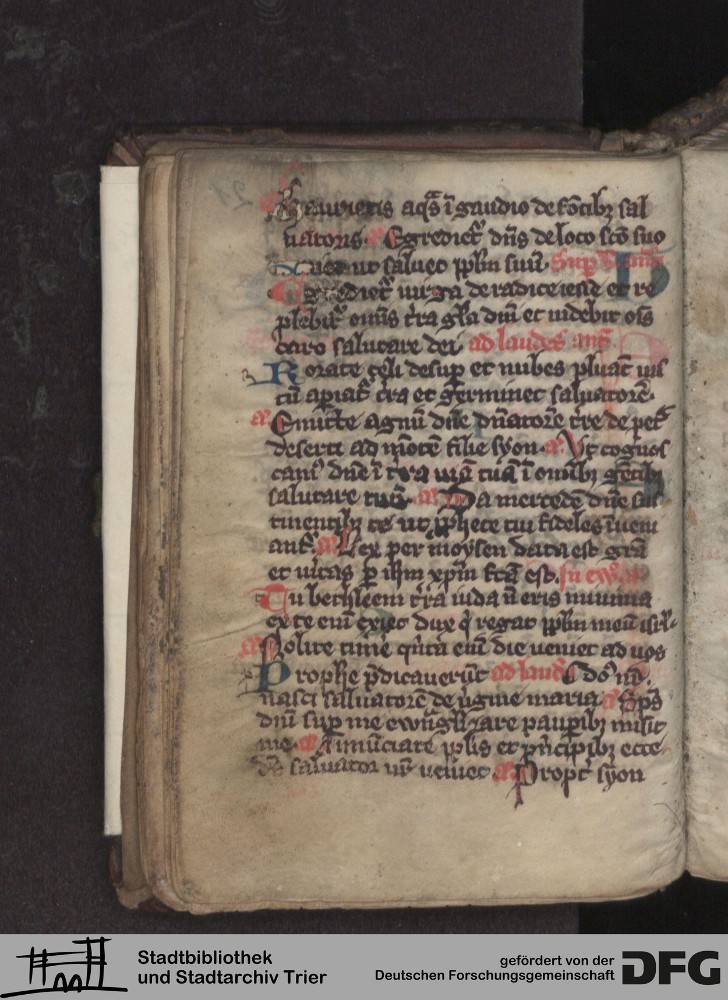 Haurietis aq̅s ī gaudio de fōtibꝫ sal
uatoris. Egrediet᷑ dn̅s de loco sc̅o suo
ueniet ut saluet pplm̅ suu̅. Sup
Egrediet᷑ uirga de radice iesse et re
plebit᷑ om̅is t̅ra gl̅a dn̅i et uidebit om̅s
caro salutare dei ad laudes an̅
Rorate celi desup et nubes pluāt ius
tū apiat᷑ t̅ra et germinet saluatorē.
Emitte agnū dn̅e dn̅atorē t̅re de pet᷑
deserti ad mōtē filie syon. a̅. Vt cognos
cam᷒ dn̅e ī t̅ra uiā tuā ī om̅ibꝫ gētibꝫ
salutare tuū. a̅. Da mercedē dn̅e sus
tinentibꝫ te ut pphete tui fideles īueni
ant᷑. a̅. Lex per moysen data est gr̅a
et u̅itas p ih̅m xp̅m fc̅a est. In ew̅
Tu bethleem t̅ra iuda n̅ eris minima
ex te eni̅ exiet dux q̇ regat pplm̅ meū isrl̅.
Nolite tim̅e q̇nta eni̅ die ueniet ad uos
Prophe p̅dicauerūt ad laud̅
nasci saluatorē de ūgine maria a̅ Sp̅s
dn̅i sup me ewāgliȝare paupibꝫ misit
me. a̅ Annūciate pplis et p̅ncipibꝫ ecce
ds̅ saluator nr̅ ueniet. a̅. Propt᷑ syon
21
Stadtbibliothek
und Stadtarchiv Trier
gefördert von der
Deutschen Forschungsgemeinschaft
DFG